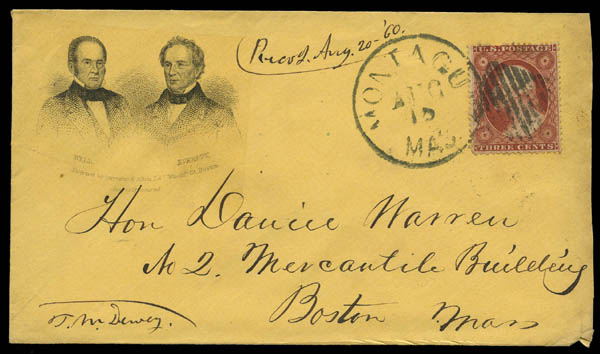 Recd. Aug. 20-'60.
MONTAGUE
AUG
MAS
U.S. POSTAGE
THREE CENTS
BELL.
EVERETT.
Hon Daniel Warren
No 2. Mercantile Building
Boston Mass
T. M. Dewey.